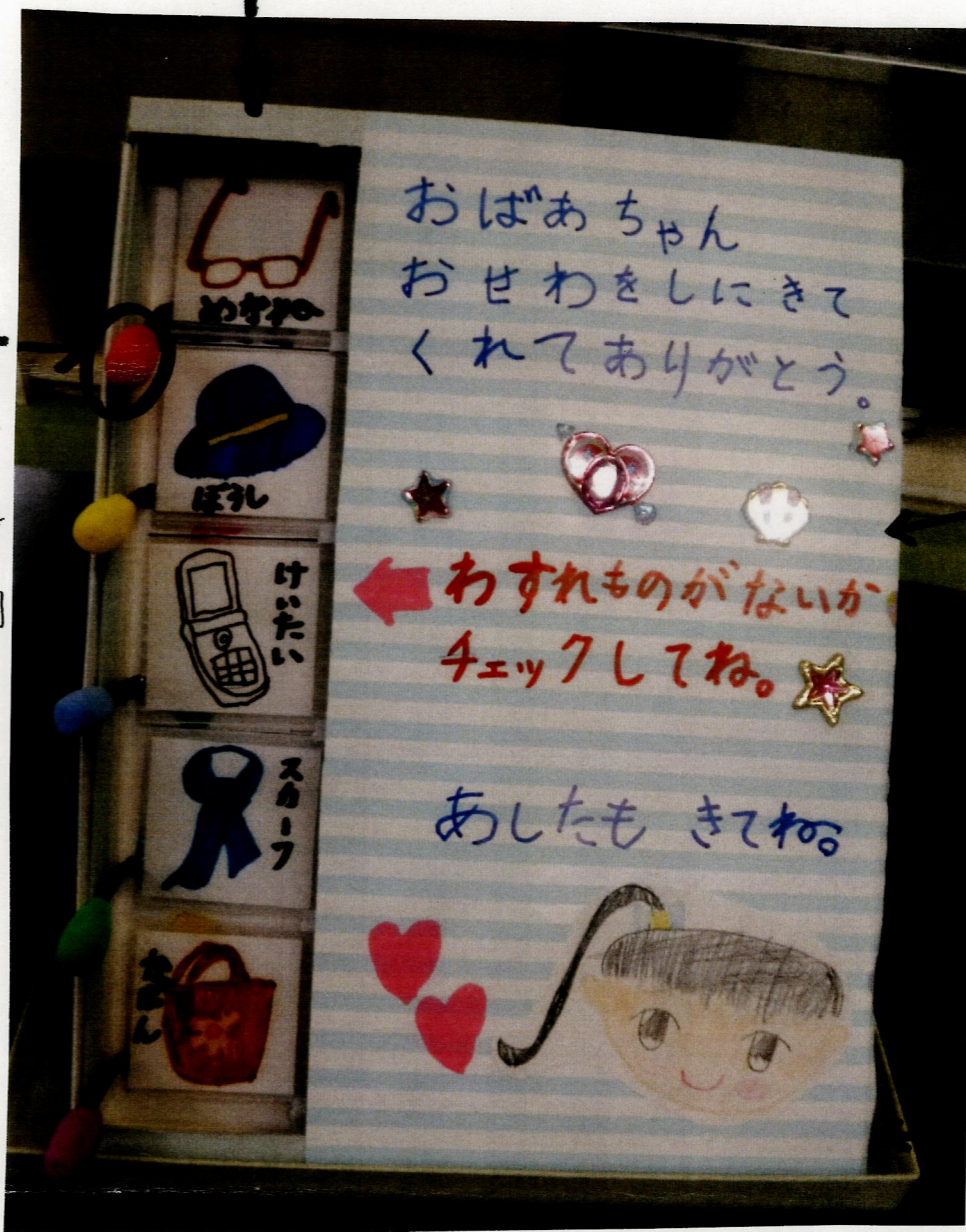 めがね
ぼうし
けいたい
スカーフ
かばん
おばあちゃん
おせわをしにきて
くれてありがとう。
わすれものがないか
チェックしてね。
あしたも きてね。